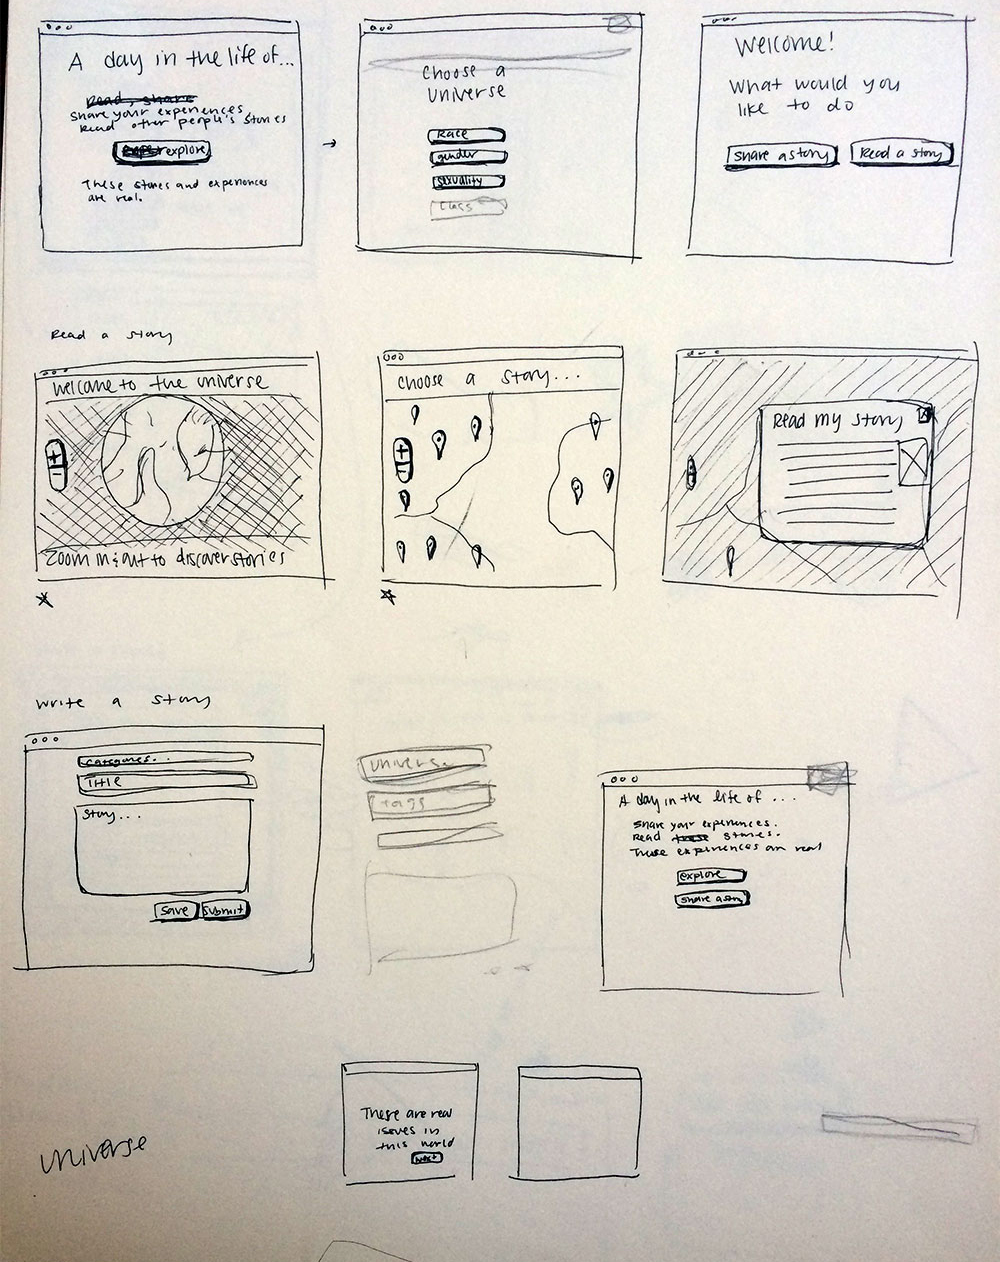 A day in the life of...
Read, share
Share your experiences,
Read other people's stories
explore
These stories and experiences
are real.
Choose a
universe
Race
gender
sexuality
Class
Welcome!
What would you
like to do
Share a story
Read a story
Read a story
Welcome to the universe
+
-
Zoom in & out to discover stories
Choose a story...
+
-
Read my story
Write a story
Categories...
Title
Story...
Save
Submit
Universe
tags
A day in the life of ...
Share your experiences.
Read these stories.
These experiences are real
explore
share a story
These are real
issues in
this world
next
universe